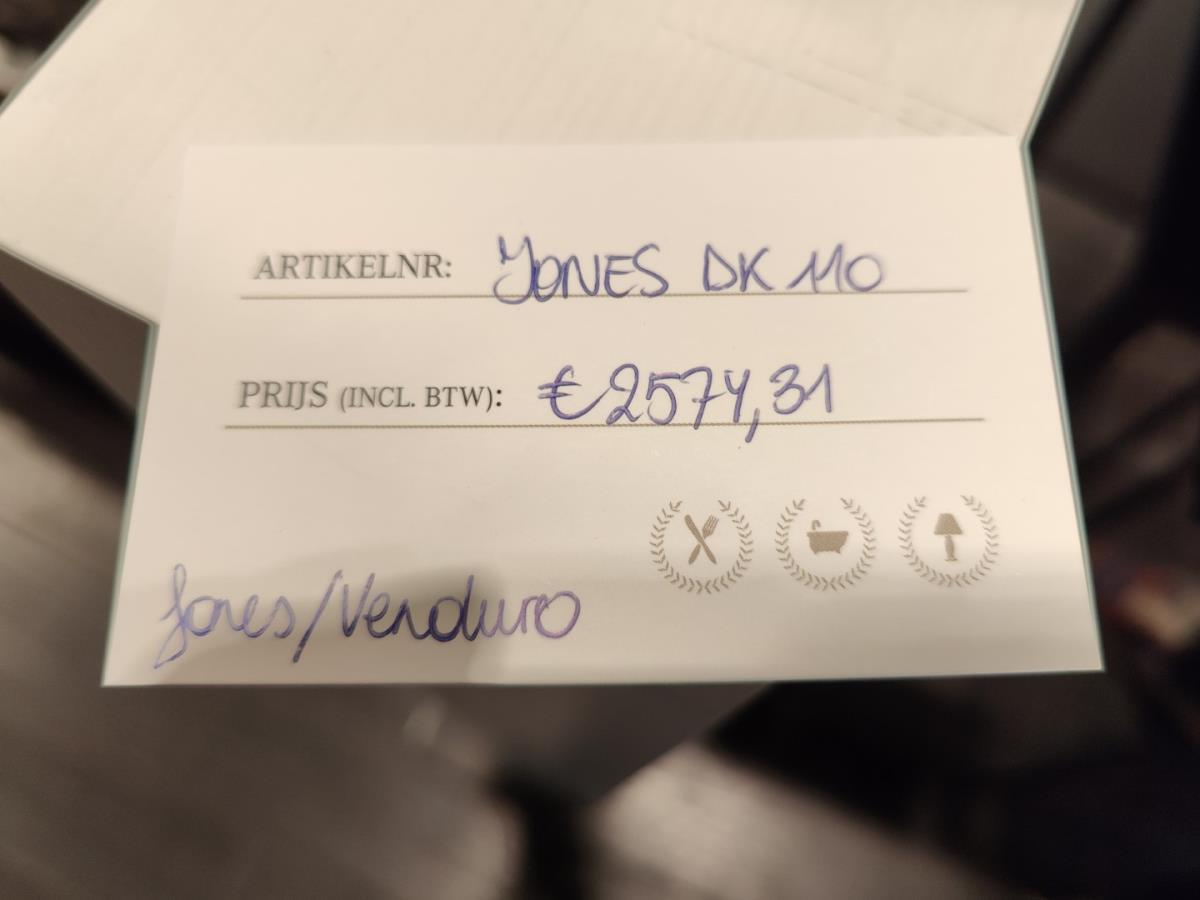 ARTIKELNR: JONES DK 110
PRIJS (INCL. BTW): € 2574,31
Jones/Venduro